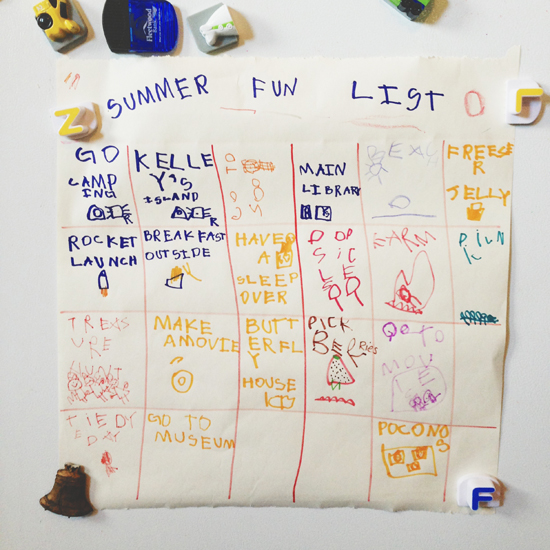 Fleetwood
Bank
SUMMER FUN LIST
Z
L
GO
CAMP
ING
KELLE
Y'S
ISLAND
MAIN
LIBRARY
FREESE
R
JELLY
ROCKET
LAUNCH
BREAKFAST
OUTSIDE
HAVE
A
SLEEP
OVER
POP
SIC
LE
FARM
TREAS
URE
MAKE
AMOVIE
BUTT
ERFL
Y
HOUSE
PICK
BERRies
GOTO
MOV
IE
TIEDY
EDAY
GO TO
MUSEUM
POCONO
S
F